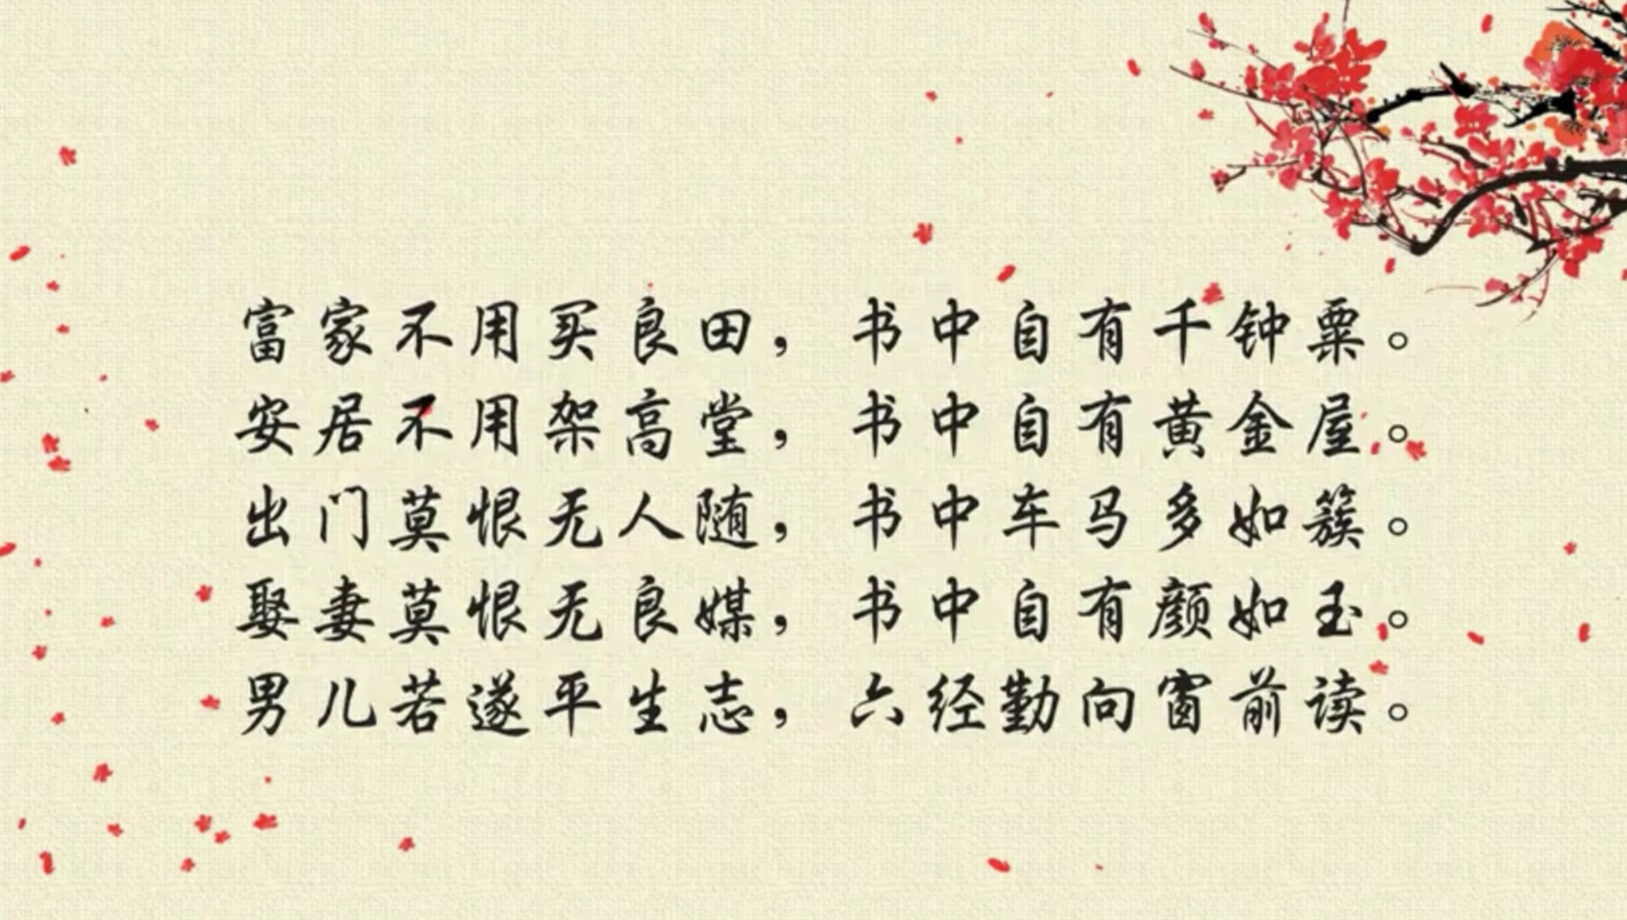 富家不用买良田，书中自有千钟粟。
安居不用架高堂，书中自有黄金屋。
出门莫恨无人随，书中车马多如簇。
娶妻莫恨无良媒，书中自有颜如玉。
男儿若遂平生志，六经勤向窗前读。